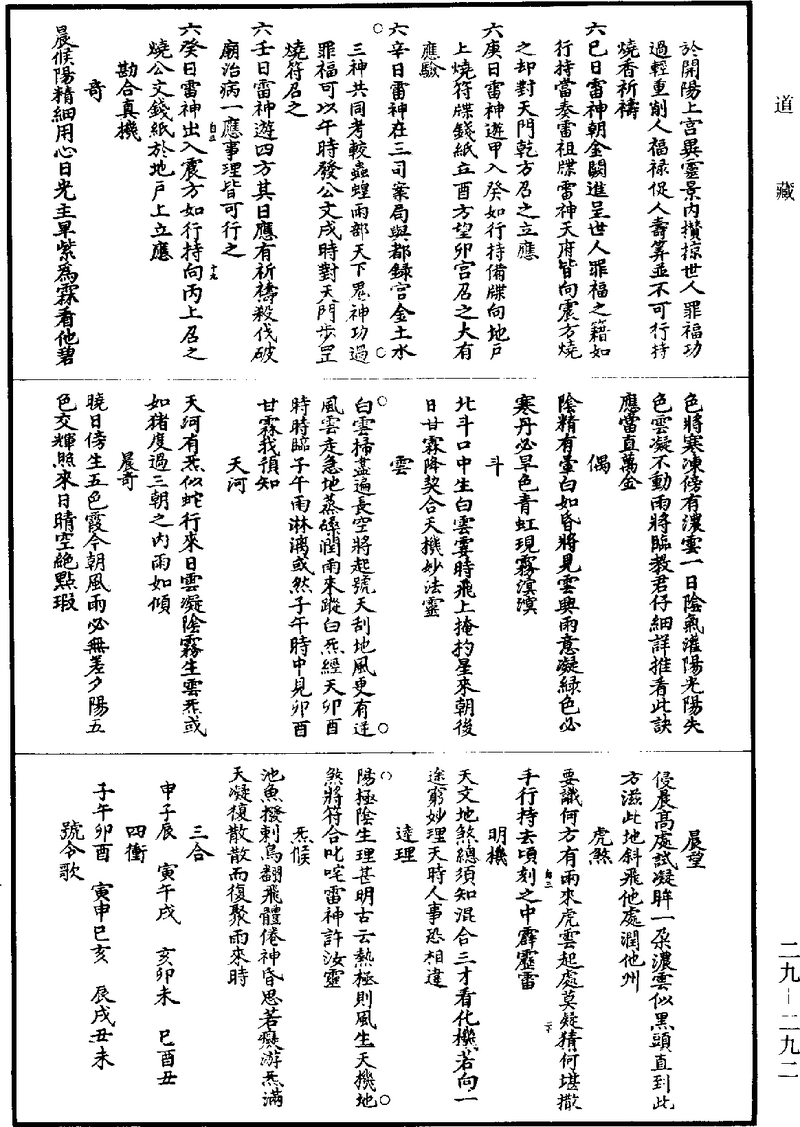 道藏
於開陽上宮異靈景內攢掠世人罪福功
過輕重削人福祿促人壽筭並不可行持
燒香祈禱
六巳日雷神朝金闕進呈世人罪福之籍如
行持當奏雷祖牒雷神天府皆向震方燒
之却對天門乾方召之立應
六庚日雷神遊甲入癸如行持備牒向地戶
上燒符牒錢紙立酉方望卯宮召之大有
應驗
六辛日雷神在三司案局與都錄宮金土水
三神共同考較蟲蝗雨部天下鬼神功過
罪福可以午時發公文戌時對天門步罡
燒符召之
六壬日雷神遊四方其日應有祈禱殺伐破
廟治病一應事理皆可行之
六癸日雷神出入震方如行持向丙上召之
燒公文錢紙於地戶上立應
勘合真機
奇
晨候陽精細用心日光主旱紫為霖看他碧
色將寒凍傍有濃雲一日陰氣灌陽光陽失
色雲凝不動雨將臨教君仔細詳推看此訣
應當直萬金
偶
陰精有暈白如昏將見雲與雨意凝綠色必
寒丹必旱色青虹現霧溟溟
斗
北斗口中生白雲霎時飛上掩杓星來朝後
日甘霖降契合天機妙法靈
雲
白雲掃盡遍長空將起號天刮地風更有逆
風雲走急地蒸礙潤雨來蹤白炁經天卯酉
時時臨子午雨淋漓或然子午時中見卯酉
甘霖我預知
天河
天河有炁似蛇行來日雲凝陰霧生雲炁或
如猪度過三朝之內雨如傾
晨奇
曉日傍生五色霞今朝風雨必無差夕陽五
色交輝照來日晴空絕點瑕
晨望
侵晨高處試凝眸一朶濃雲似黑頭直到此
方滋此地斜飛他處潤他州
虎煞
要識何方有雨來虎雲起處莫疑猜何堪撒
手行持去頃刻之中霹靂雷
明機
天文地煞總須知混合三才看化機若向一
途窮妙理天時人事恐相違
達理
陽極陰生理甚明古云熱極則風生天機地
煞將符合叱咤雷神許汝靈
炁候
池魚撥剌鳥翻飛體倦神昏思若癡游炁滿
天凝復散散而復聚雨來時
三合
申子辰 寅午戌 亥卯未 巳酉丑
四衝
子午卯酉 寅申巳亥 辰戌丑未
號令歌
二九－二九二